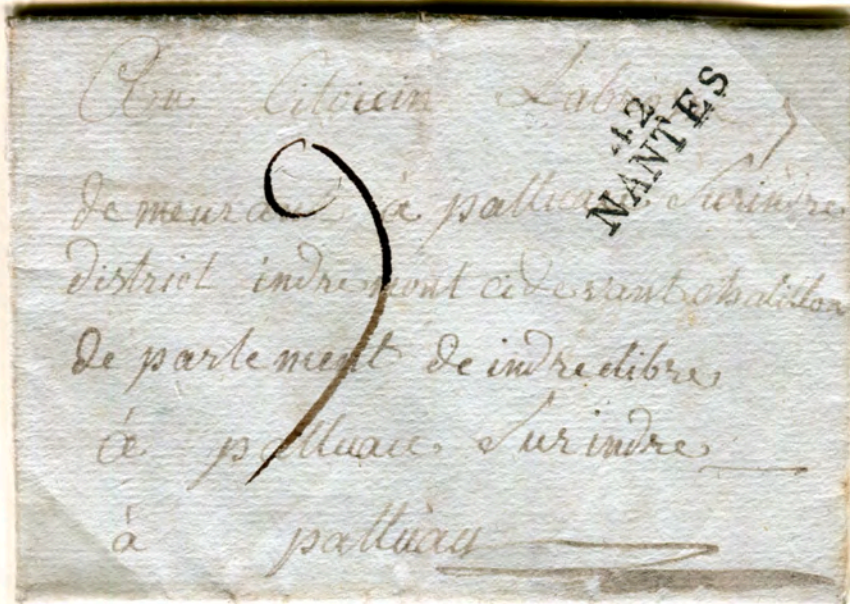 Au Citoicin
42
NANTES
demeurant à palluau Surindre
district indremont cidevant chatillon
de partement de indrelibre
à palluau Surindre
à palluau
9